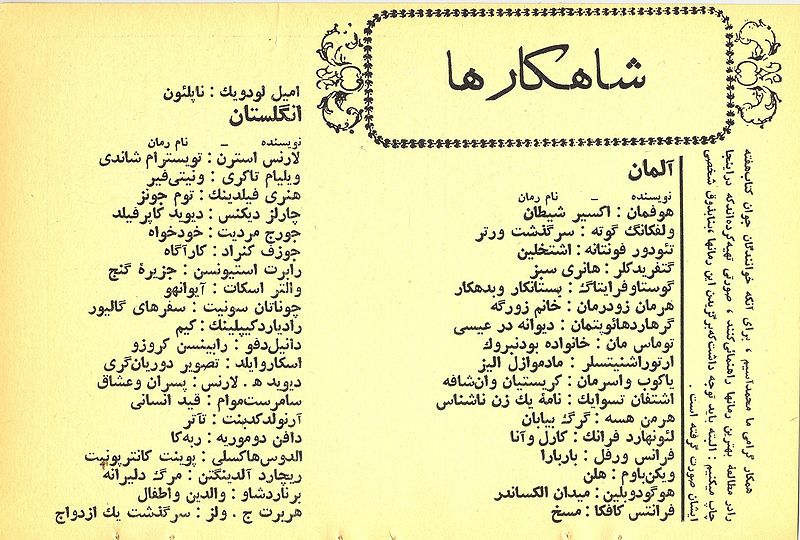 شاهکارها
همکار گرامی ما محمداسیم ، برای آنکه خوانندگان جوان کتاب‌هفته
رادر مطالعهٔ بهترین رمانها راهنمائی‌کنند ، صورتی تهیه‌کرده‌اندکه دراینجا
چاپ میکنیم . البته باید توجه داشت‌که‌برگزیدن این رمانها ،بنابذوق شخصی
ایشان صورت گرفته است .
آلمان
نویسنده – نام رمان
هوفمان : اکسیر شیطان
ولفگانگ گوته : سرگذشت ورتر
تئودور فونتانه : اشتخلین
گتفریدکلر : هانری سبز
گوستاوفرایتاگ : بستانکار وبدهکار
هرمان زودرمان : خانم زورگه
گرهاردهائوپتمان : دیوانه در عیسی
توماس مان : خانواده بودنبروک
ارتوراشنیتسلر : مادموازل الیز
یاکوب واسرمان : کریستیان وان‌شافه
اشتفان تسوایک : نامهٔ یک زن ناشناس
هرمن هسه : گرگ بیابان
لئونهارد فرانک : کارل وآنا
فرانس ورفل : باربارا
ویکی‌باوم : هلن
هوگودوبلین : میدان الکساندر
فرانتس کافکا : مسخ
امیل لودویک : ناپلئون
انگلستان
نویسنده – نام رمان
لارنس استرن : تویسترام شاندی
ویلیام تاکری : ونیتی‌فیر
هنری فیلدینک : توم جونز
چارلز دیکنس : دیوید کاپرفیلد
جورج مردیت : خودخواه
جوزف کنراد : کارآگاه
رابرت استیونسن : جزیرهٔ گنج
والتر اسکات : آیوانهو
جوناتان سونیت : سفرهای گالیور
رادیاردکیپلینک : کیم
دانیل‌دفو : رابینسن کروزو
اسکاروایلد : تصویر دوریان‌گری
دیوید ه . لارنس : پسران وعشاق
سامرست‌موام : قید انسانی
آرنولدکدبنت : تآتر
دافن دوموریه : ربه‌کا
الدوس‌هاکسلی : پوینت کانترپونیت
ریچارد آلدینگتن : مرگ دلیرانه
برناردشاو : والدین واطفال
هربرت ج . ولز : سرگذشت یک ازدواج